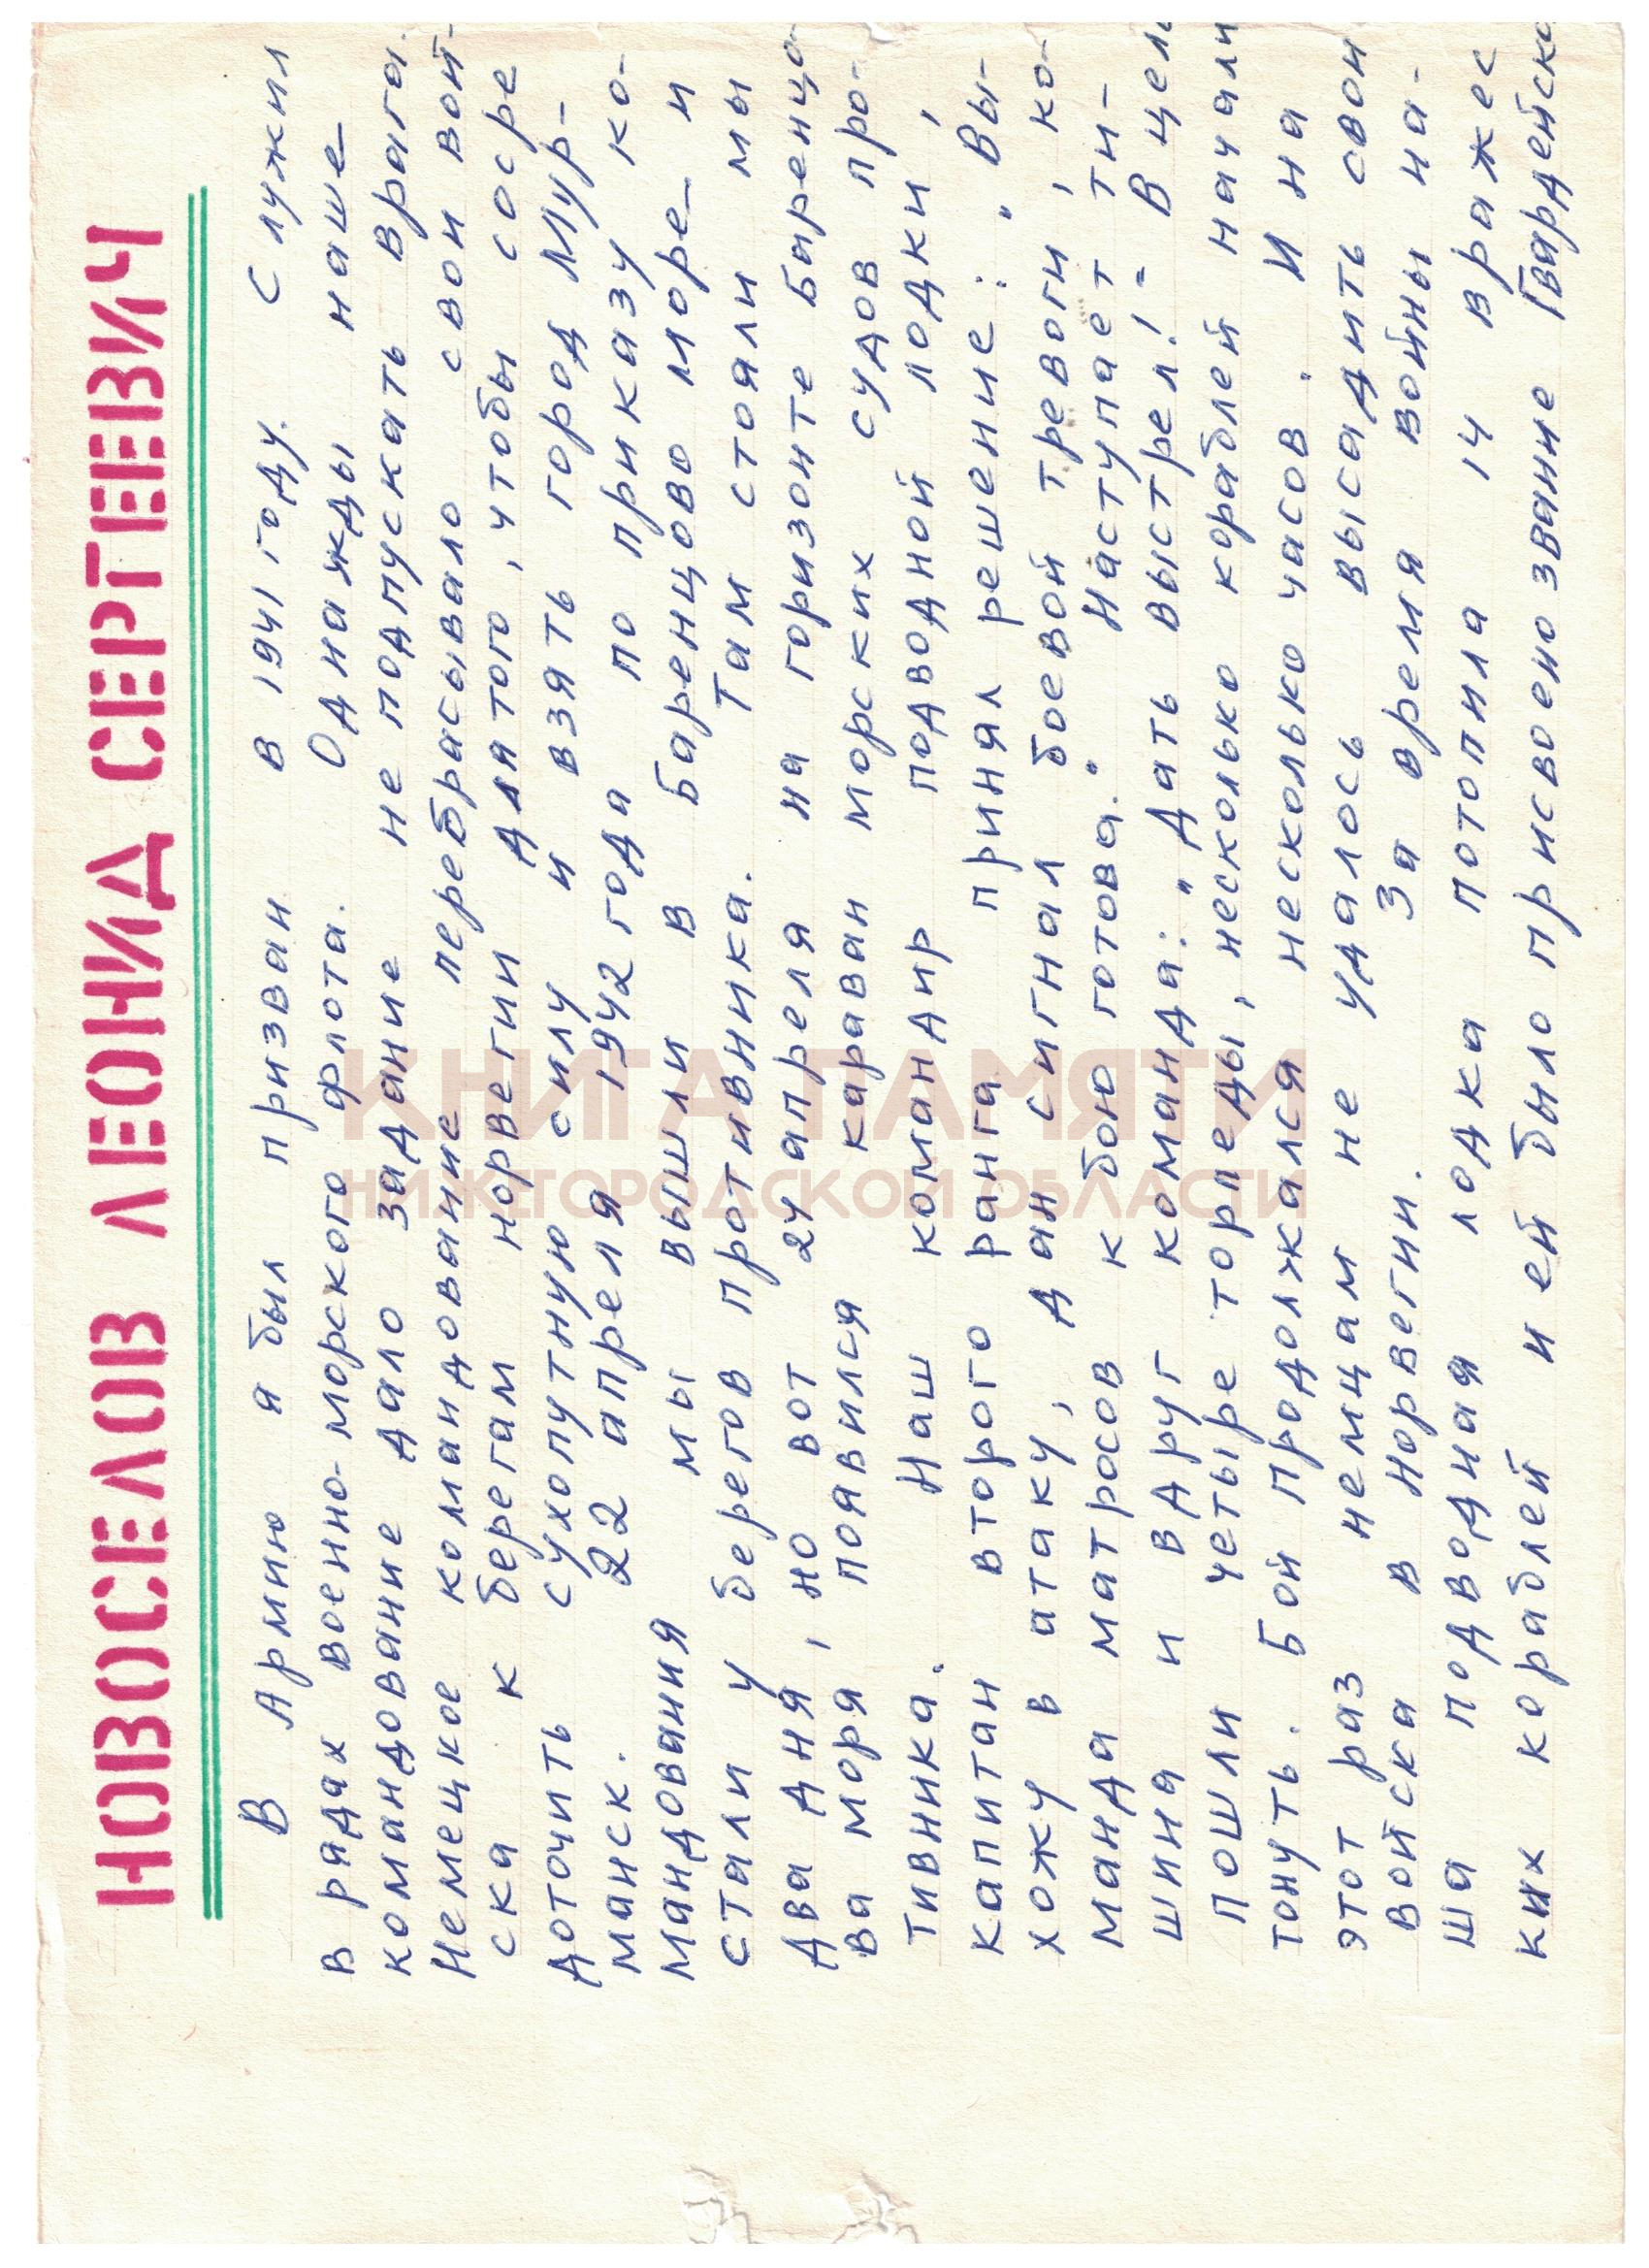 НОВОСЕЛОВ ЛЕОНИД СЕРГЕЕВИЧ
В Армию я был призван в 1941 году. Служил
в рядах военно-морского флота. Однажды наше
командование дало задание не подпускать врага.
Немецкое командование перебрасывало свои вой-
ска к берегам норвегии для того, чтобы сосре
доточить сухопутную силу и взять город Мур-
манск. 22 апреля 1942 года по приказу ко-
мандования мы вышли в Баренцово море и
стали у берегов противника. Там стояли мы
два дня, но вот 24 апреля на горизонте Баренцо-
ва моря появился караван морских судов про-
тивника. Наш командир подводной лодки,
капитан второго ранга принял решение: "Вы-
хожу в атаку, дан сигнал боевой тревоги, ко-
манда матросов к бою готова." Наступает ти-
шина и вдруг команда: "Дать выстрел!" В цель
пошли четыре торпеды, несколько кораблей начали
тонуть. Бой продолжался несколько часов. И на
этот раз немцам не удалось высадить свои
войска в Норвегии. За время войны на-
ша подводная лодка потопила 14 вражес
ких кораблей и ей было присвоено звание Гвардейско
КНИГА ПАМЯТИ
НИЖЕГОРОДСКОЙ ОБЛАСТИ